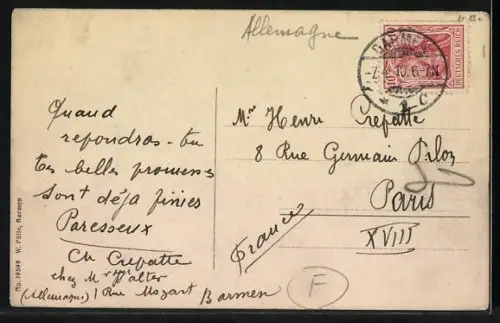 Allemagne
BARMEN
10. 6-7N
DEUTSCHES REICH
10
Quand
repondras-tu
tes belles promesses
sont déja finies
Paresseux
Ch Crepatte
chez Mr Walter
(Allemagne) 1 Rue Mozart Barmen
Mr Henri Crepatte
8 Rue Germain Pilon
Paris
XVIII
France
F
No. 18599 W. Fülle, Barmen